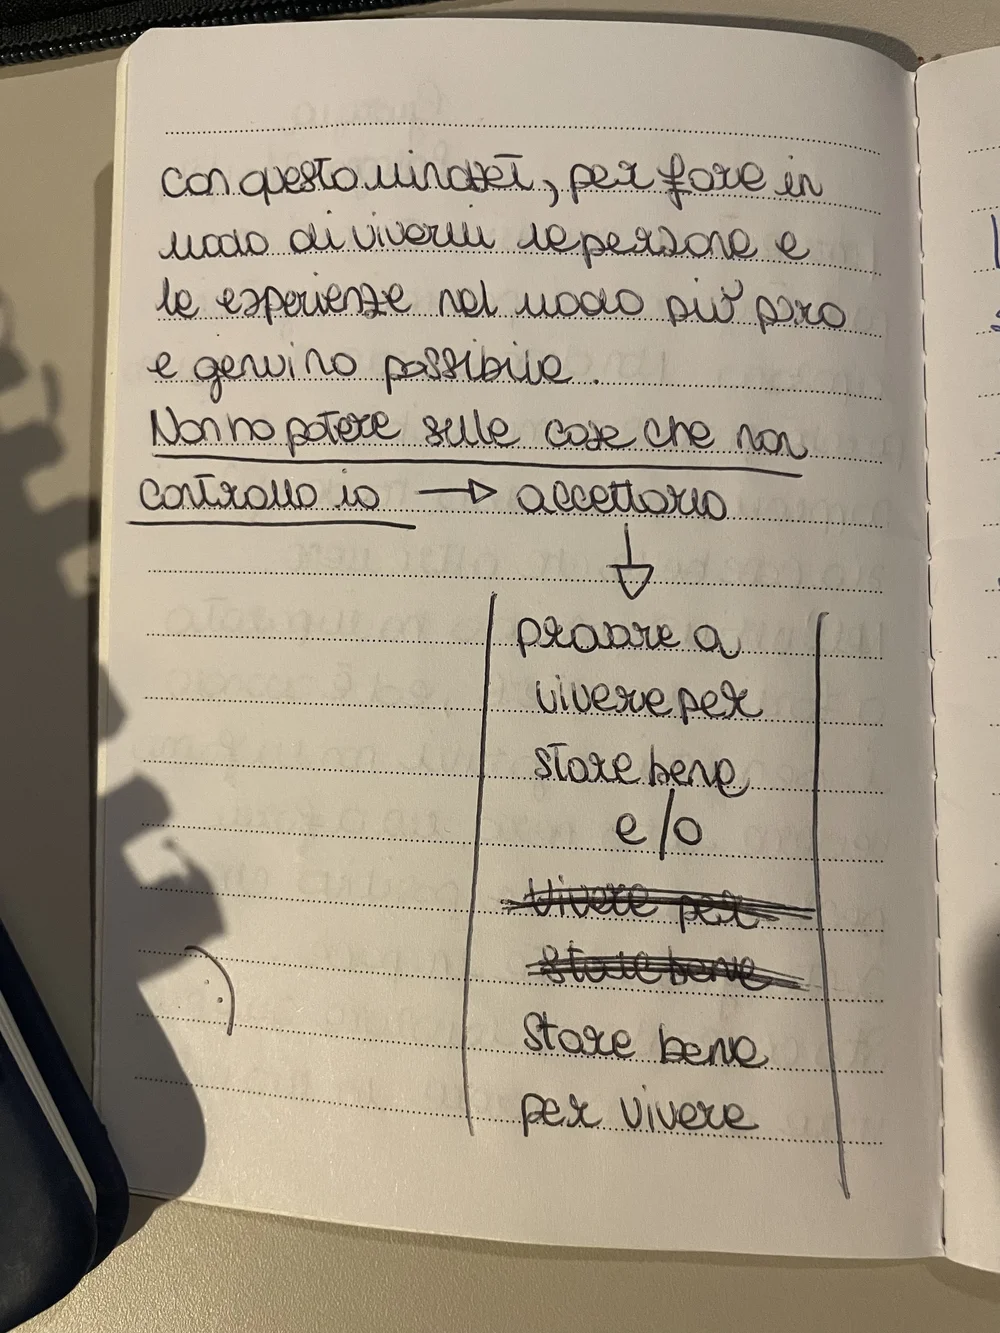 con questo mindset, per fare in
modo di vivermi le persone e
le esperienze nel modo più puro
e genuino possibile.
Non ho potere sulle cose che non
controllo io → accettarlo
↓
provare a
vivere per
stare bene
e/o
vivere per
stare bene
stare bene
per vivere